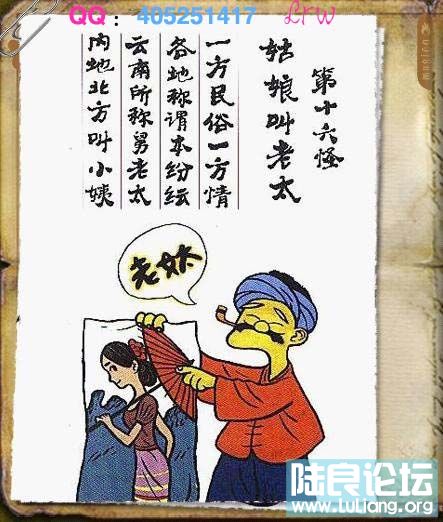 QQ：405251417 Lrw
第十六怪
姑娘叫老太
一方民俗一方情
各地称谓本纷纭
云南所称舅老太
内地北方叫小姨
老
陆良论坛
www.luliang.org